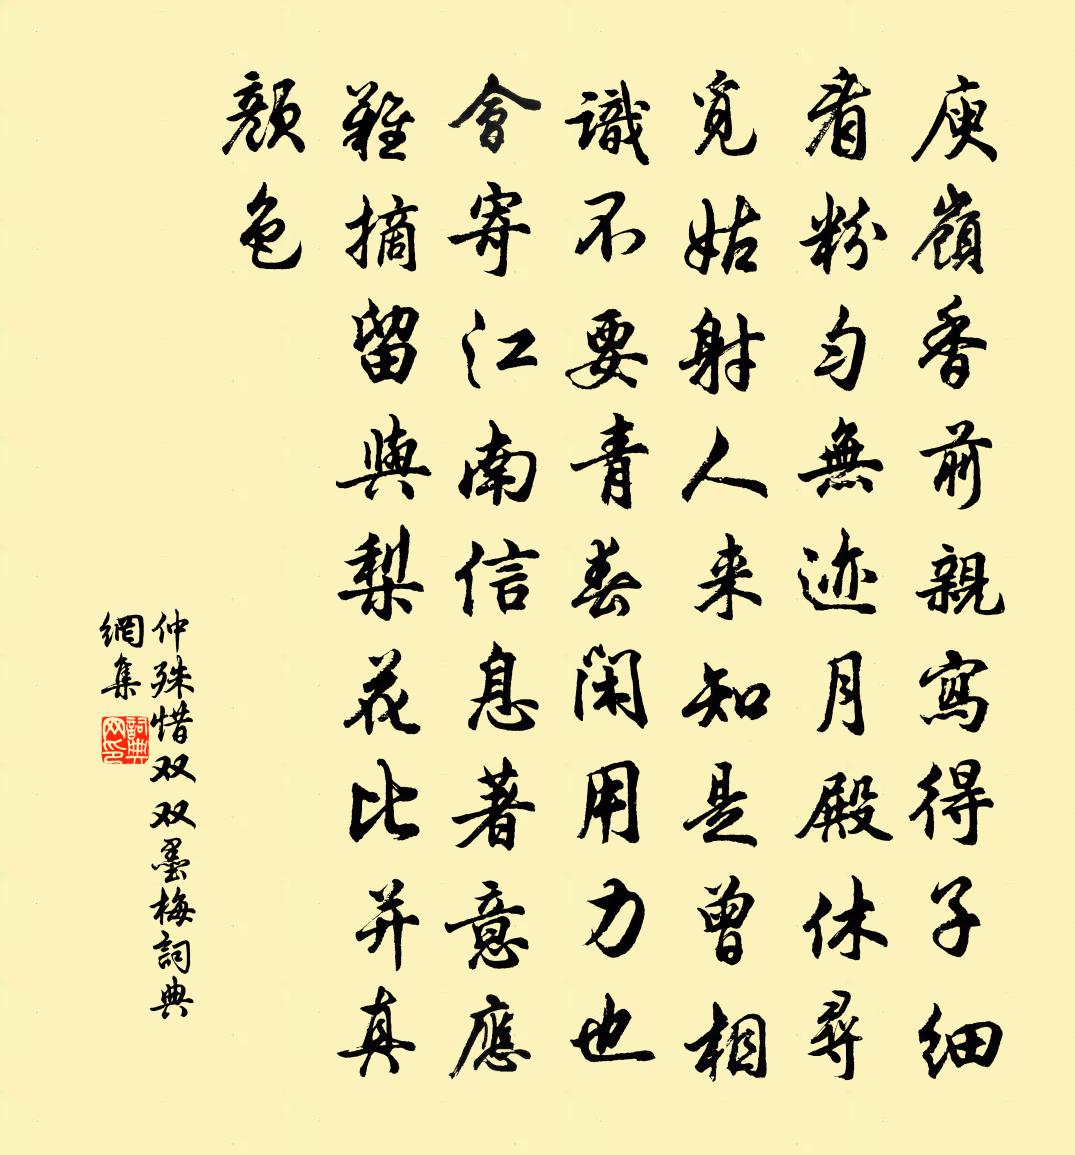 庾嶺香前親寫得子細
看粉勻無迹月殿休尋
覓姑射人来知是曾相
識不要青春閑用力也
會寄江南信息著意應
難摘留與梨花比并真
顏色
仲殊惜双双墨梅詞典
網集
詞典網印